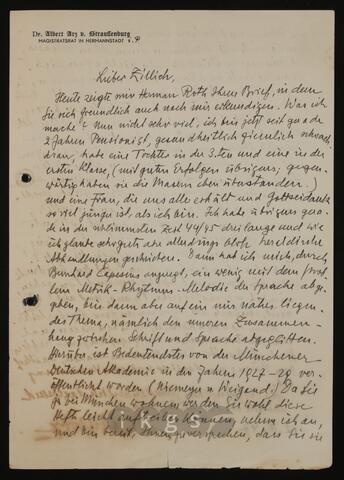 Dr. Albert Arz v. Straußenburg
MAGISTRATSRAT IN HERMANNSTADT
Lieber Zillich,
Heute zeigte mir Herman Roth Ihren Brief, in dem
Sie sich freundlich auch nach mir erkundigen. Was ich
mache? Nun nicht sehr viel, ich bin jetzt seit gerade
2 Jahren Pensionist, gesundheitlich ziemlich schwach
dran, habe eine Tochter in der 3.ten und eine in der
ersten Klasse, (mit guten Erfolgen übrigens; gegen-
wärtig haben sie die Masern eben überstanden.)
und eine Frau, die uns alle erhält und Gottseidank
so viel jünger ist als ich bin. Ich habe übrigens gera-
de in der schlimmsten Zeit 44/45 drei lange und wie
ich glaube sehr gute aber allerdings bloß heraldische
Abhandlungen geschrieben. Dann hat ich mich, durch
Bernhard Capesius angeregt, ein wenig mit dem Prob-
lem Metrik-Rhythmus-Melodie der Sprache abge-
geben, bin dann aber auf ein mir näher liegen-
des Thema, nämlich den inneren Zusammen-
hang zwischen Schrift und Sprache abgeglitten.
Hierüber ist Bedeutendstes von der Münchener
Deutschen Akademie in den Jahren 1927-29 ver-
öffentlicht worden (Niemeyer u. Weigand.) Da Sie
ja bei München wohnen, werden Sie wohl diese
Hefte leicht auftreiben können, nehme ich an,
und bin bereit, Ihnen zu versprechen, dass Sie sie
ikgs